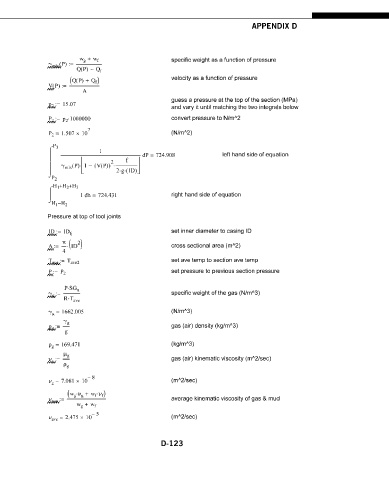 APPENDIX D
γmix(P) := (wg + wf) / (Q(P) − Ql) specific weight as a function of pressure
V(P) := (Q(P) + Ql) / A velocity as a function of pressure
:= 15.07 guess a pressure at the top of the section (MPa)
and vary it until matching the two integrals below
1000000 convert pressure to N/m^2
P2 = 1.507 × 10^7 (N/m^2)
dP = 724.908 left hand side of equation
1 dh = 724.431 right hand side of equation
Pressure at top of tool joints
ID := IDc set inner diameter to casing ID
A := π/4 (ID^2) cross sectional area (m^2)
set ave temp to section ave temp
P := P2 set pressure to previous section pressure
γg := P·SGg / R·Tave specific weight of the gas (N/m^3)
γg = 1662.005 (N/m^3)
ρg := γg / g gas (air) density (kg/m^3)
ρg = 169.471 (kg/m^3)
νg := μg / ρg gas (air) kinematic viscosity (m^2/sec)
νg = 7.081 × 10^−8 (m^2/sec)
νave := (wg·νg + wf·νf) / (wg + wf) average kinematic viscosity of gas & mud
νave = 2.475 × 10^−5 (m^2/sec)
D-123